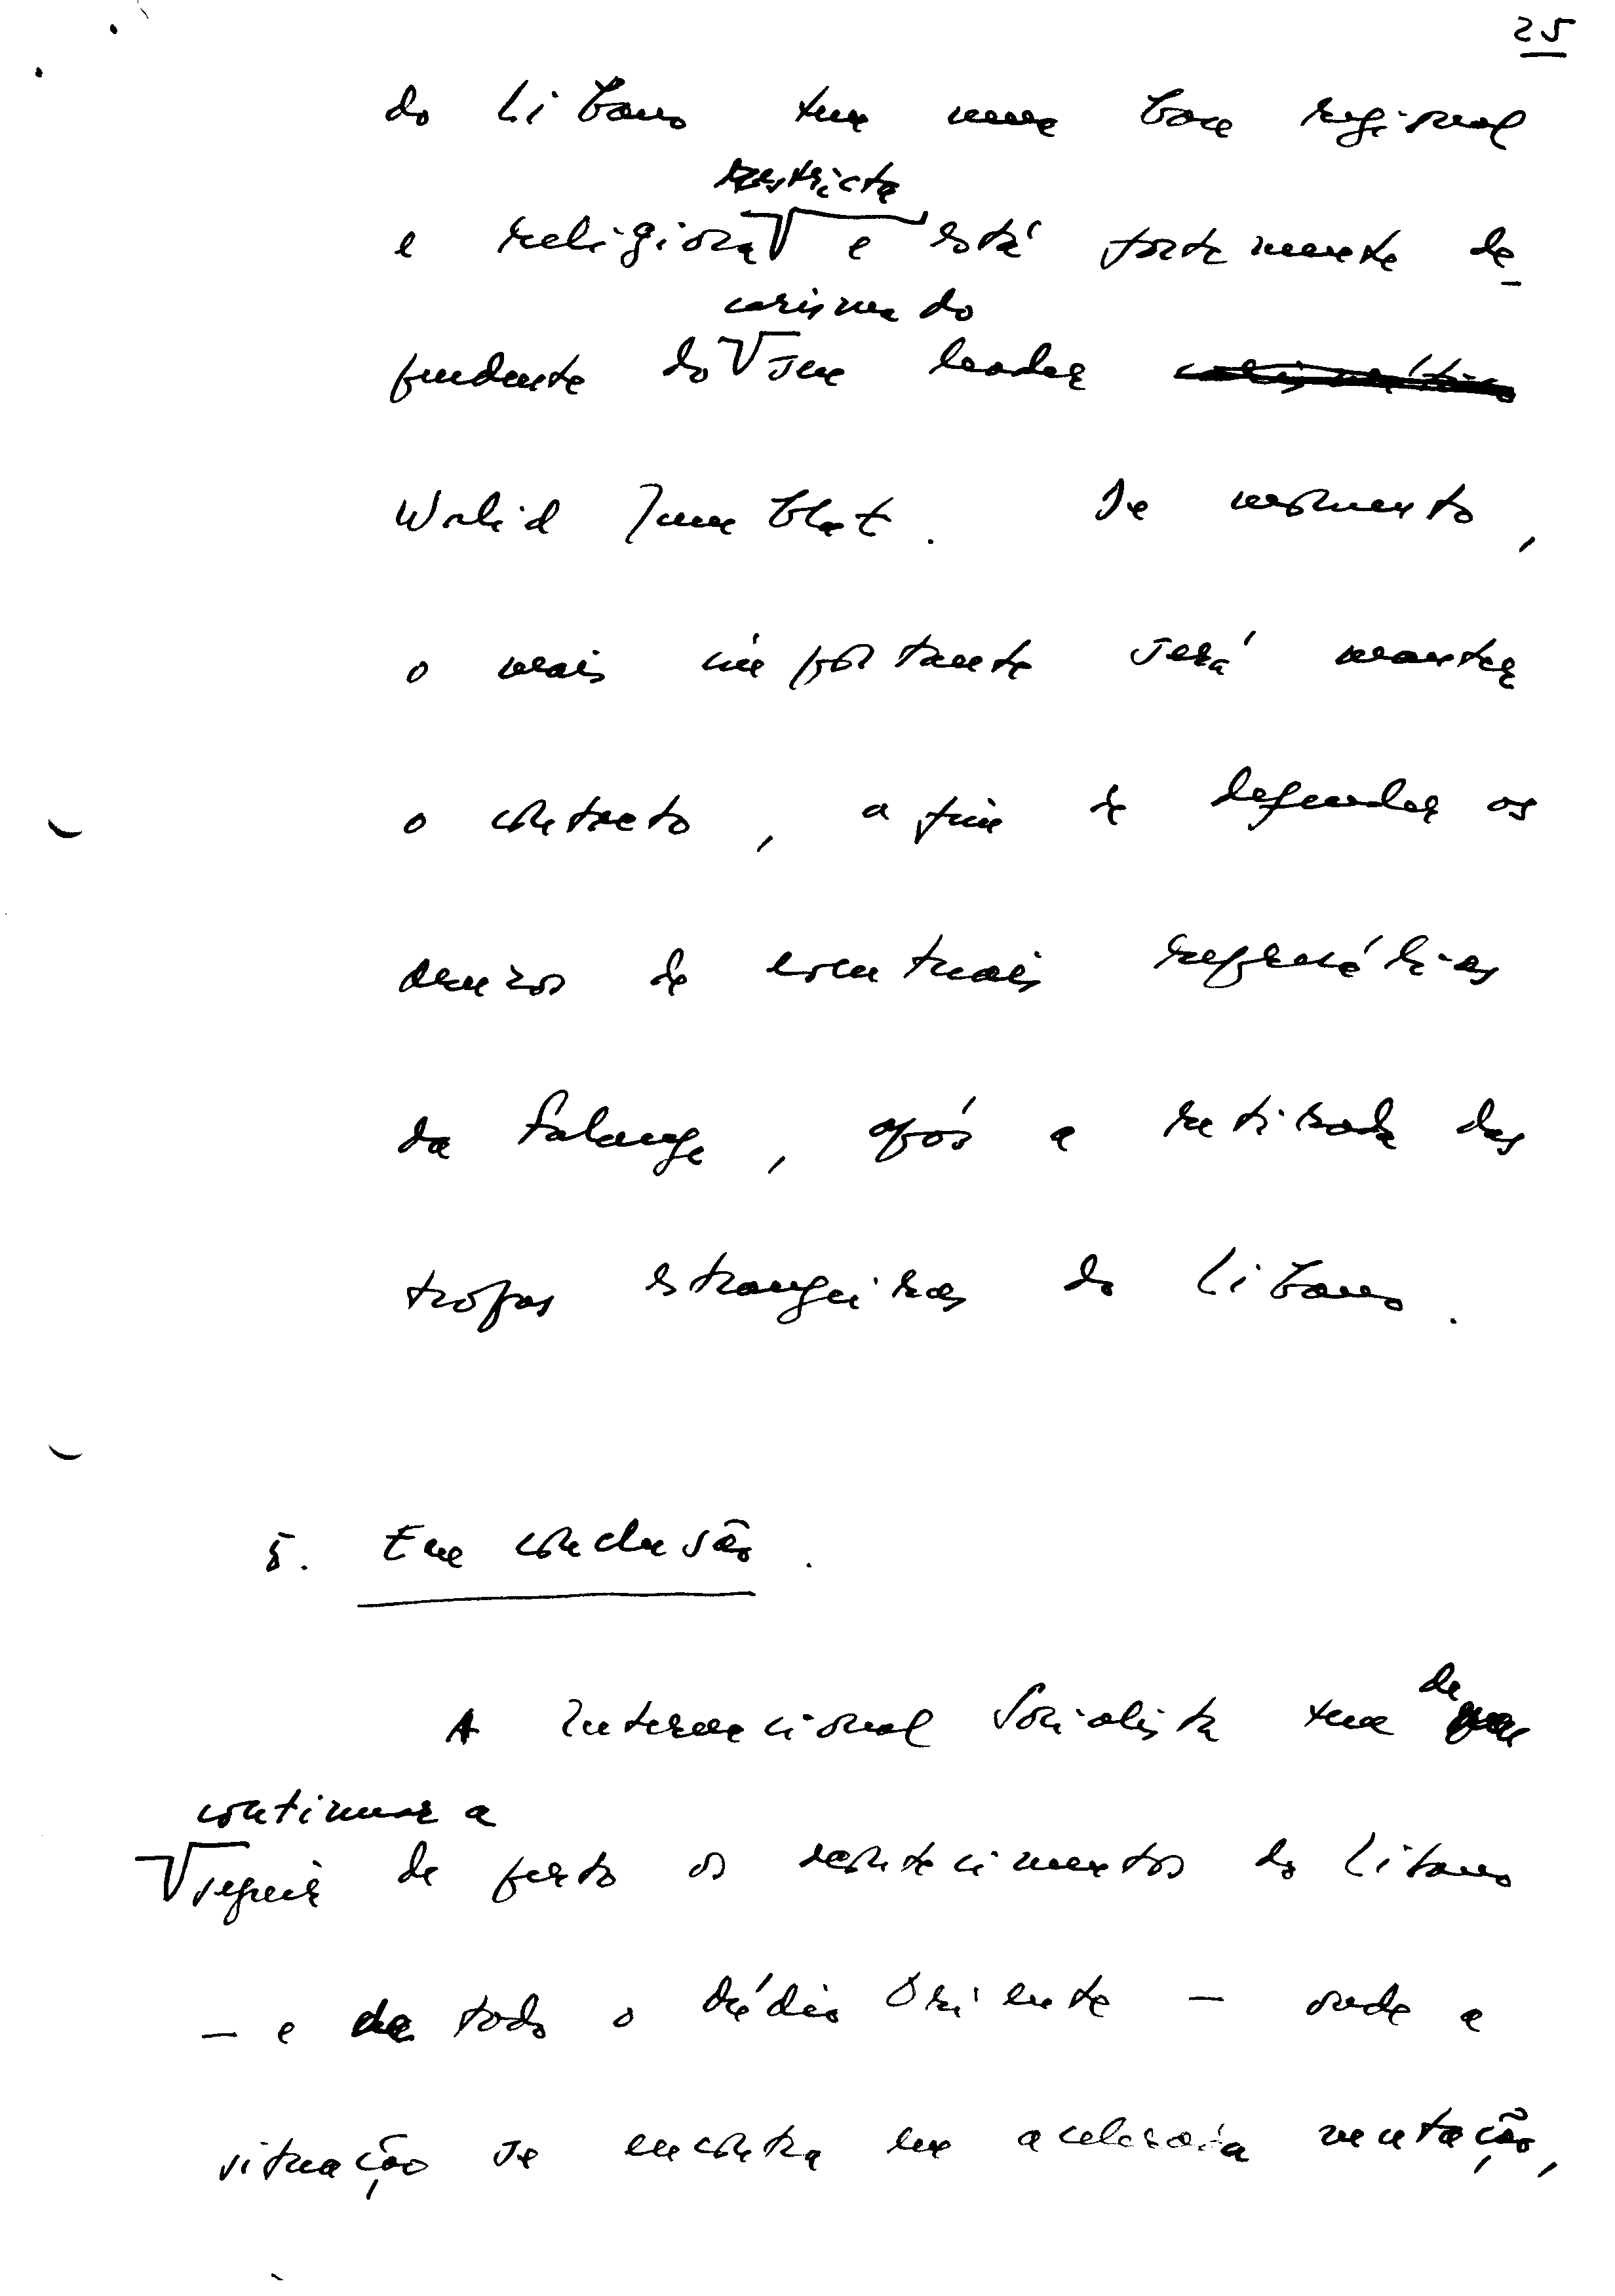 25
do Libano tem uma base regional
restricta
e religiosa e está fortemente de-
carisma do
pendente do seu leader carismático
Walid Jumblat. De momento,
o mais importante será manter
o contacto, a fim de defender os
drusos de eventuais represálias
da Falange, após a retirada das
tropas estrangeiras do Libano.
5. Em conclusão.
de
A Internacional Socialista tem que
continuar a
seguir de perto os acontecimentos do Libano
- e de todo o Médio Oriente - onde a
situação se encontra em acelerada mutação,